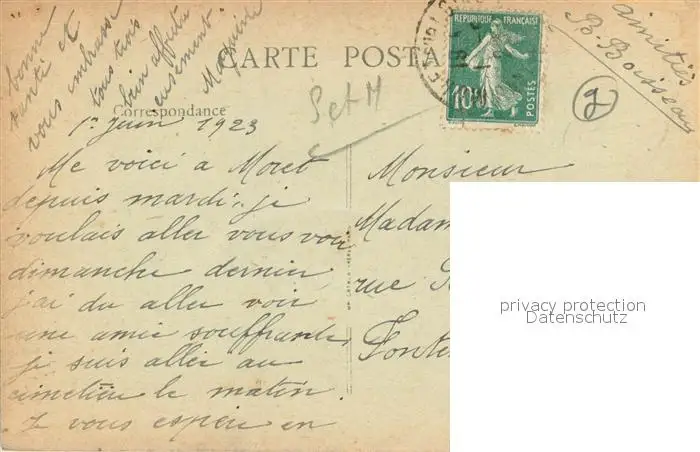 bonne
santé et
vous embrasse
tous trois
bien affectu
eusement.
Marguerite
CARTE POSTA
Correspondance
RÉPUBLIQUE FRANÇAISE
10c
POSTES
amitiés
B. Boisseau
S et M
1er juin 1923
Me voici a Moret
depuis mardi, je
voulais aller vous voir
dimanche dernier
j'ai du aller voir
une amie souffrante,
je suis aller au
cimetière le matin.
J vous espère en
Monsieur
Madam
rue
Fonte
privacy protection
Datenschutz